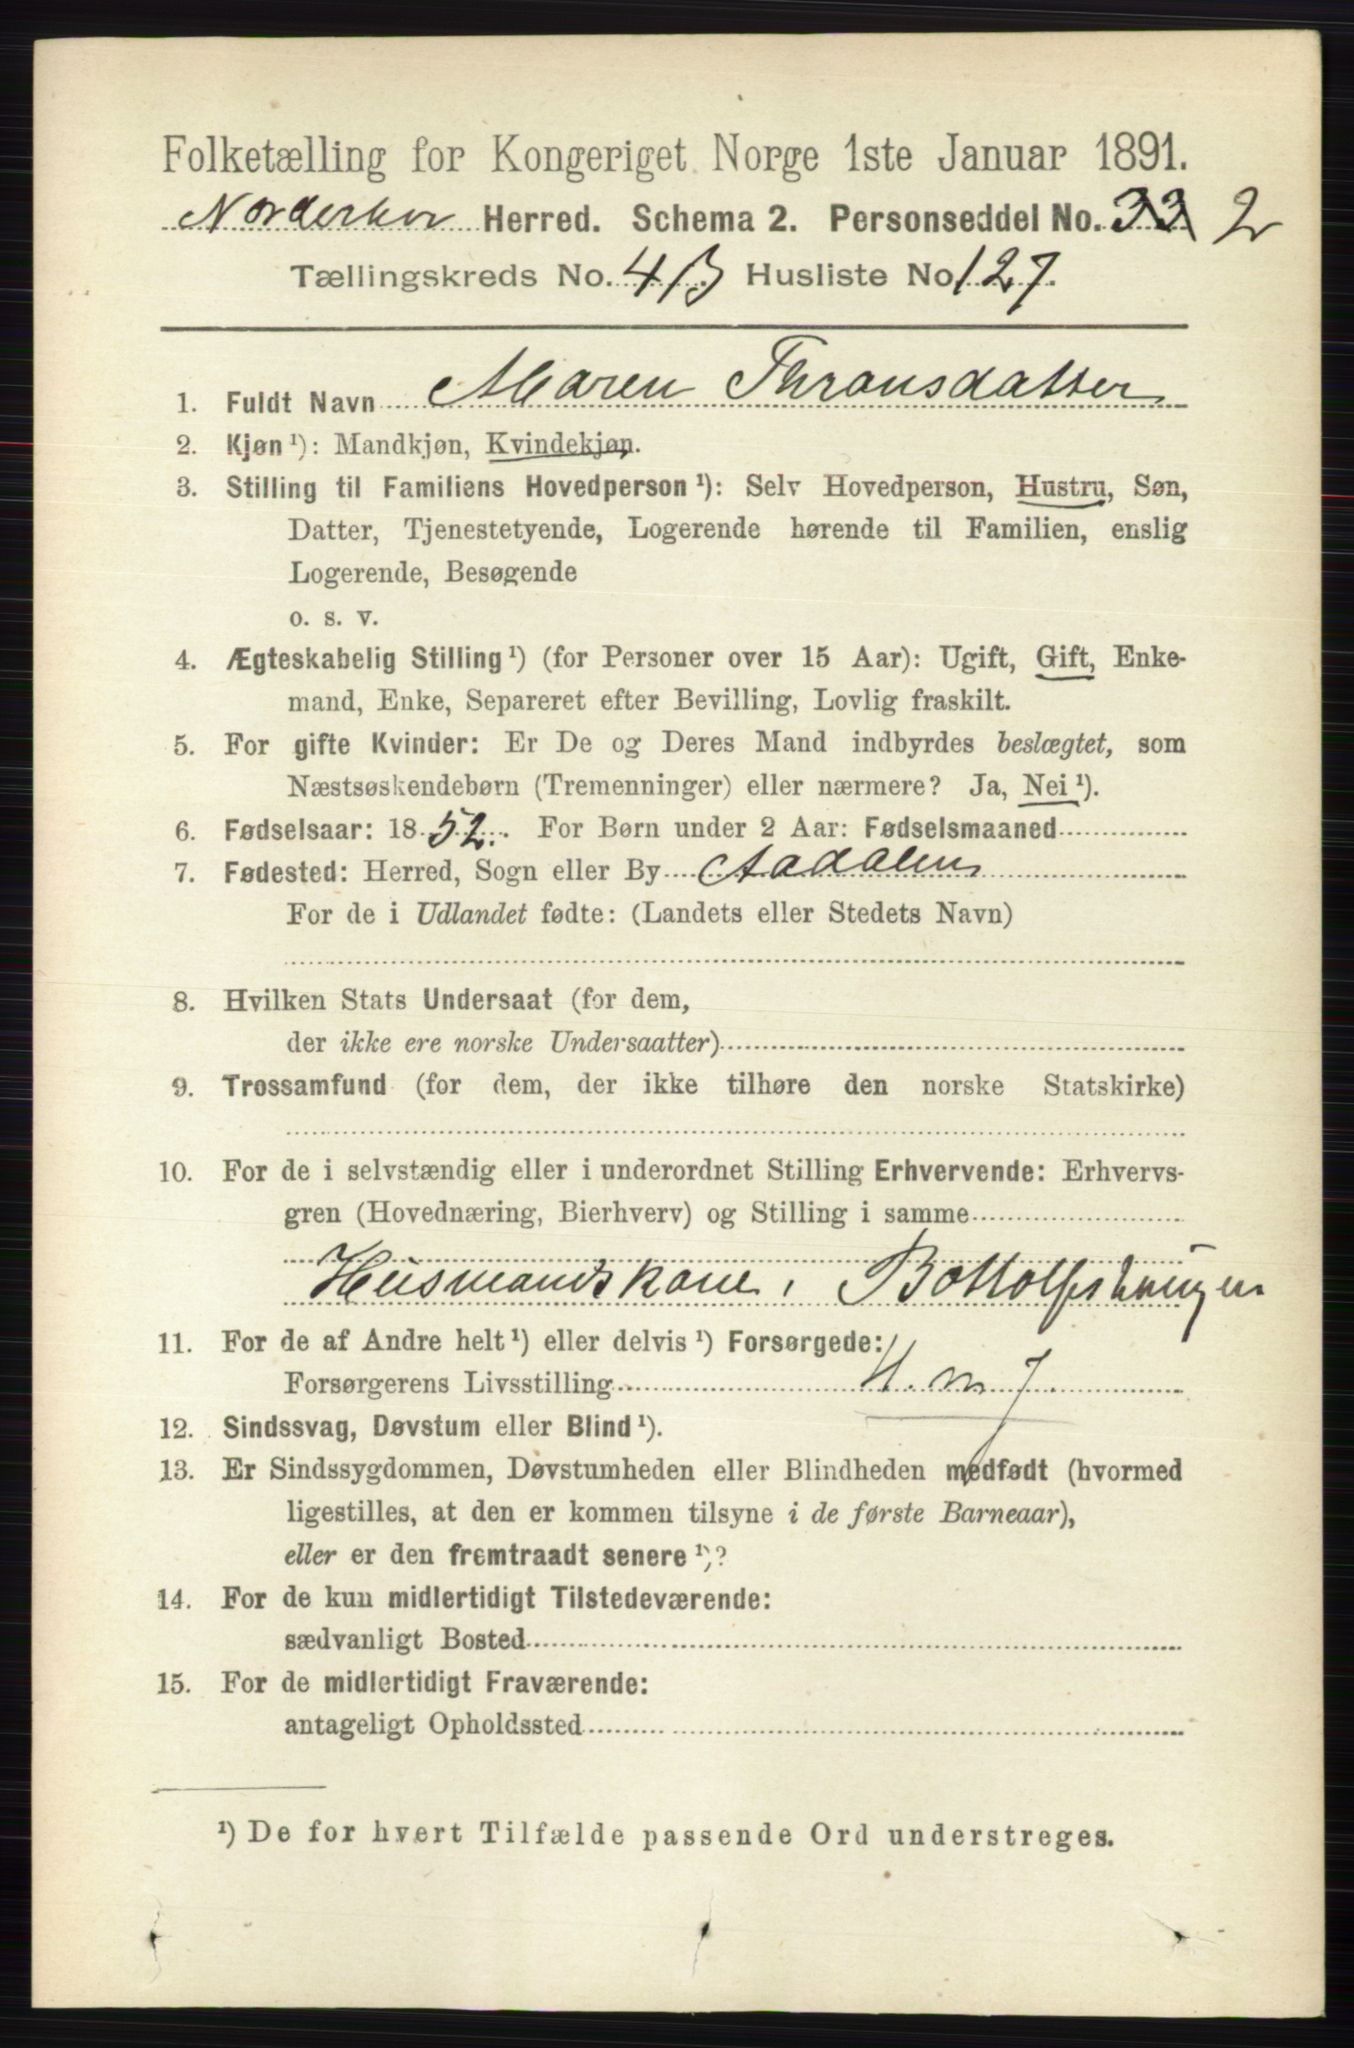 Folketælling for Kongeriget Norge 1ste Januar 1891.
Norderhov Herred. Schema 2. Personseddel No. 33 2
Tællingskreds No. 4 B Husliste No 127.
1. Fuldt Navn Maren Thronsdatter
2. Kjøn¹): Mandkjøn, Kvindekjøn.
3. Stilling til Familiens Hovedperson¹): Selv Hovedperson, Hustru, Søn,
Datter, Tjenestetyende, Logerende hørende til Familien, enslig
Logerende, Besøgende
o. s. v.
4. Ægteskabelig Stilling¹) (for Personer over 15 Aar): Ugift, Gift, Enke-
mand, Enke, Separeret efter Bevilling, Lovlig fraskilt.
5. For gifte Kvinder: Er De og Deres Mand indbyrdes beslægtet, som
Næstsøskendebørn (Tremenninger) eller nærmere? Ja, Nei¹).
6. Fødselsaar: 1852. For Børn under 2 Aar: Fødselsmaaned
7. Fødested: Herred, Sogn eller By Aadalen
For de i Udlandet fødte: (Landets eller Stedets Navn)
8. Hvilken Stats Undersaat (for dem,
der ikke ere norske Undersaatter)
9. Trossamfund (for dem, der ikke tilhøre den norske Statskirke)
10. For de i selvstændig eller i underordnet Stilling Erhvervende: Erhvervs-
gren (Hovednæring, Bierhverv) og Stilling i samme
Husmandskone, Bottolfshaugen
11. For de af Andre helt¹) eller delvis¹) Forsørgede:
Forsørgerens Livsstilling H. m J
12. Sindssvag, Døvstum eller Blind¹).
13. Er Sindssygdommen, Døvstumheden eller Blindheden medfødt (hvormed
ligestilles, at den er kommen tilsyne i de første Barneaar),
eller er den fremtraadt senere¹)?
14. For de kun midlertidigt Tilstedeværende:
sædvanligt Bosted
15. For de midlertidigt Fraværende:
antageligt Opholdssted
¹) De for hvert Tilfælde passende Ord understreges.